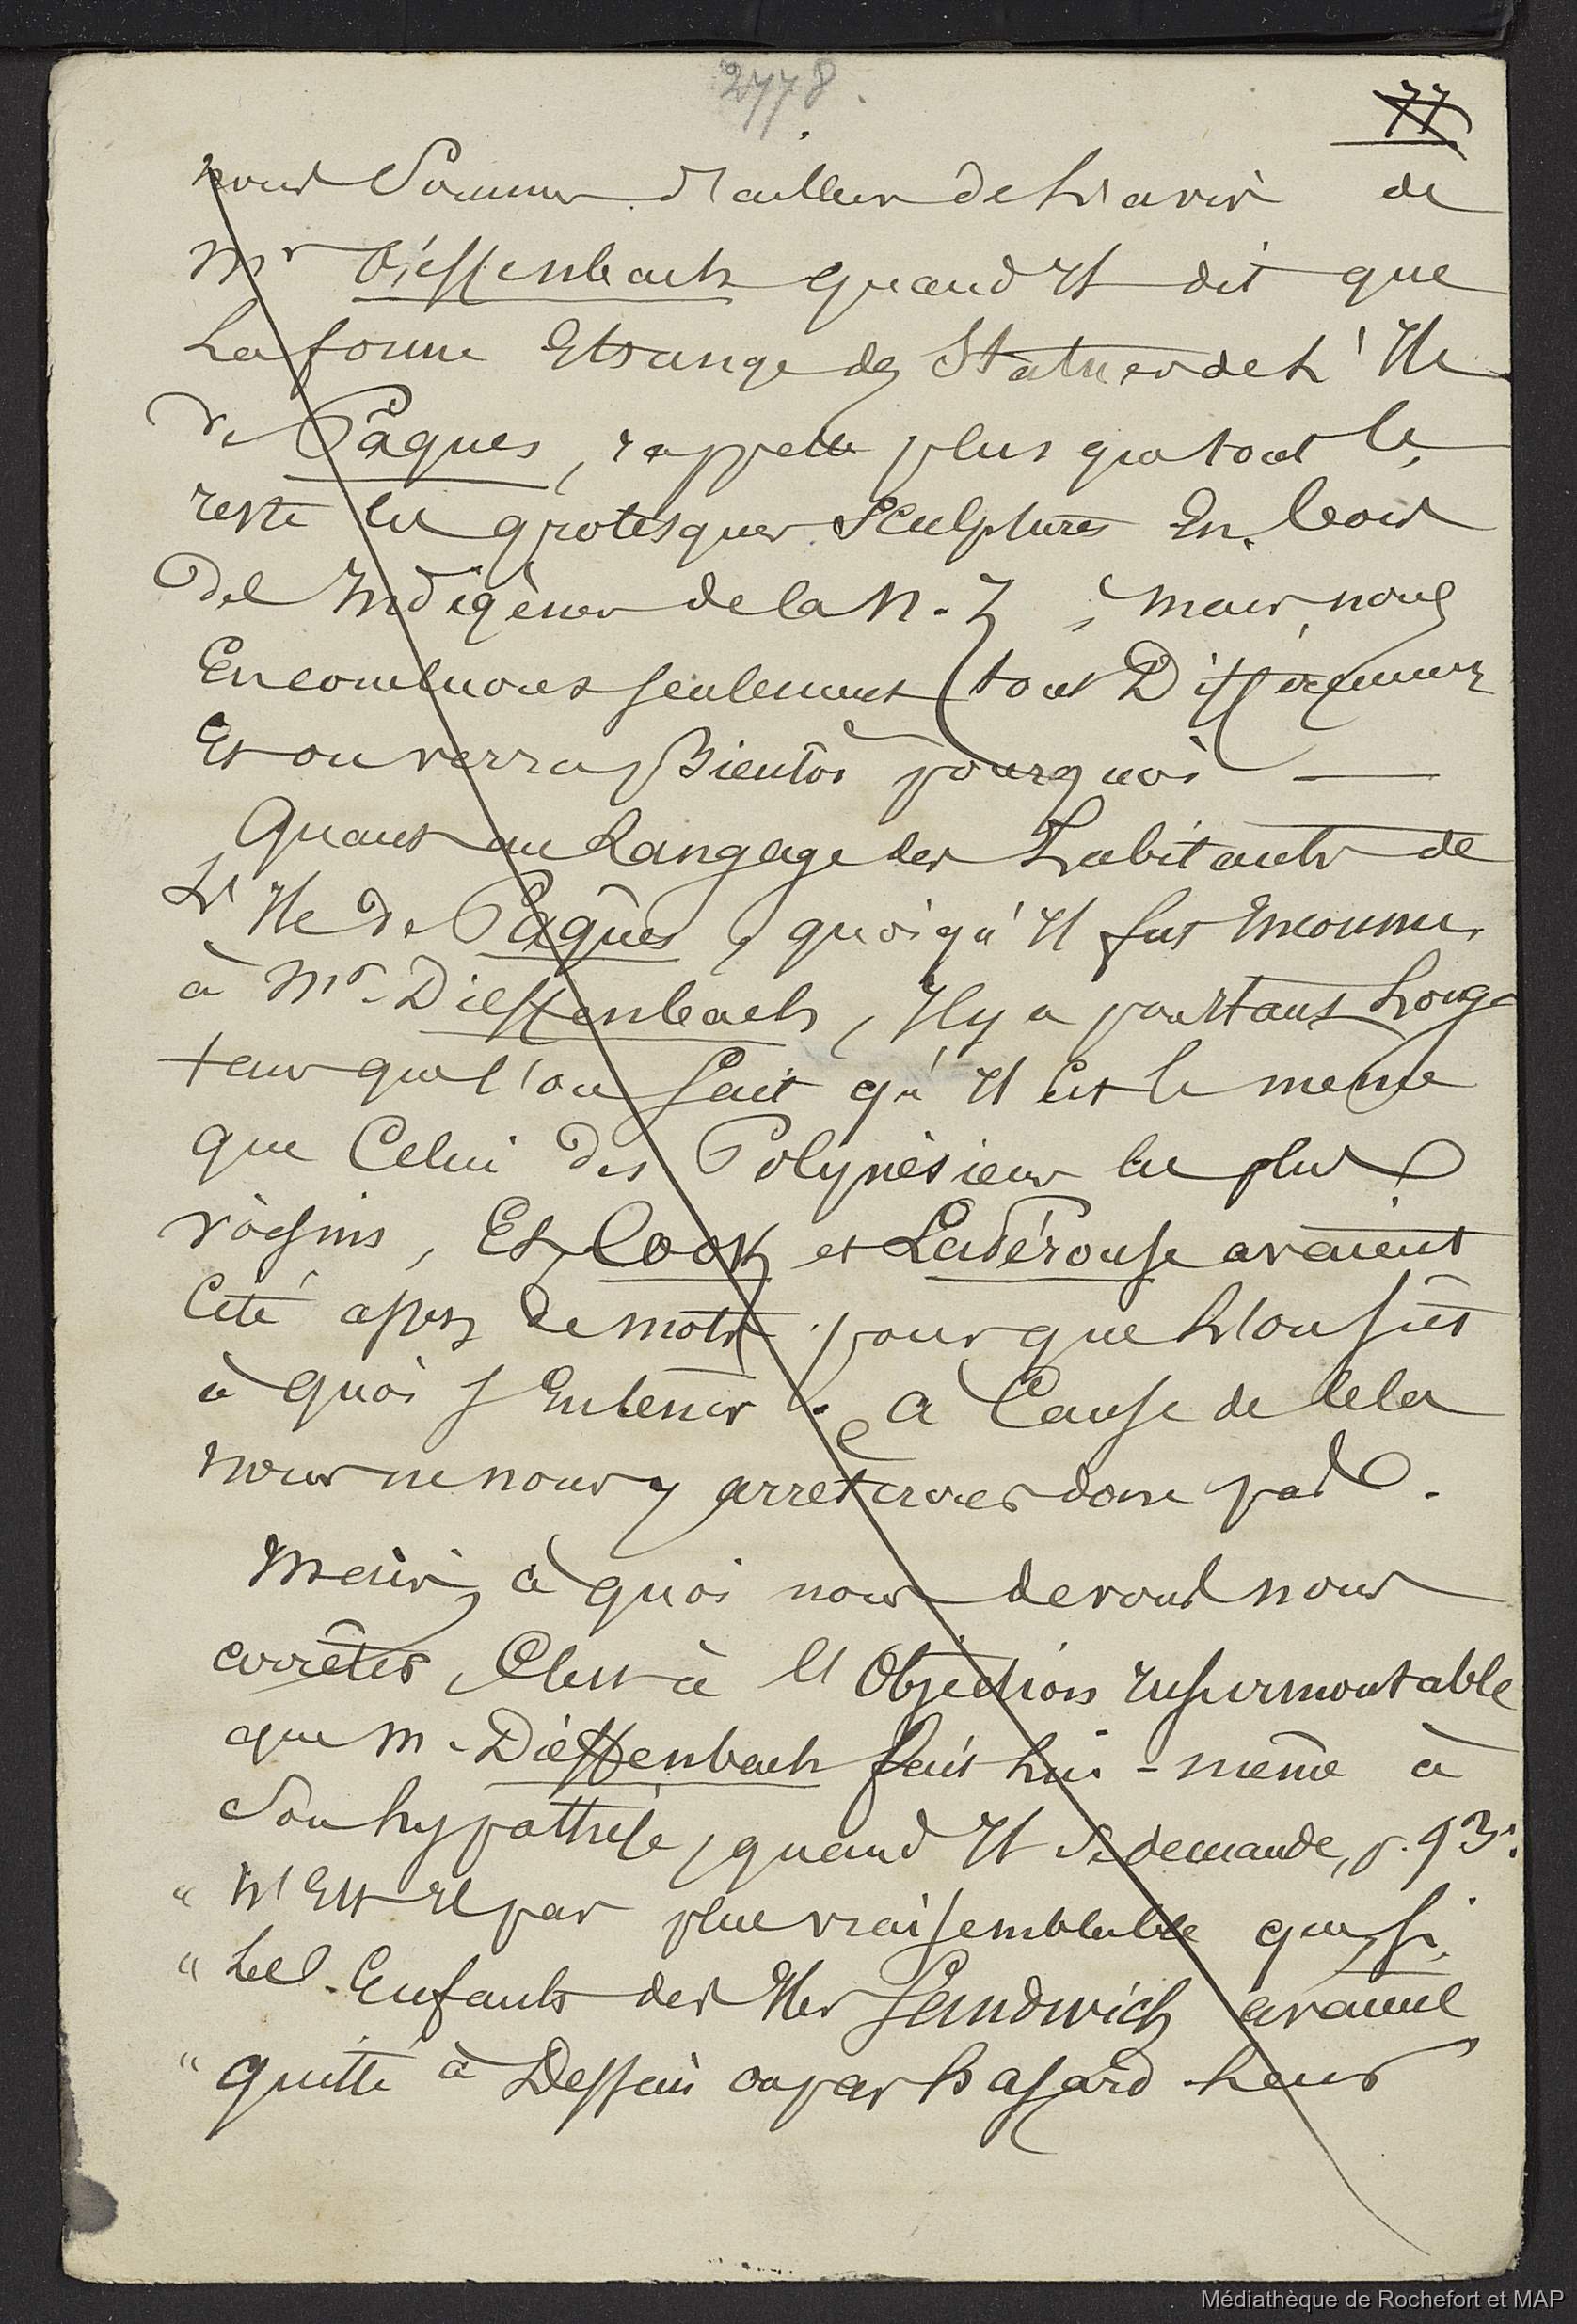 2778.
77
nous Sommes d'ailleurs de L'avis de
Mr Dieffenbach quand Il dit que
La forme Etrange des Statues de L'Ile
de Pâques, rappelle plus que tout le
reste les grotesques Sculptures En bois
des Indigènes de la N. Z ; mais nous
En concluons seulement tout Différemment
Et on verra Bientôt pourquoi —
Quant au Langage des Habitants de
L'Ile de Pâques, quoiqu'Il fut Inconnu
à Mr. Dieffenbach, Il y a pourtant Long-
tems que l'on sait qu'Il Est le même
que Celui des Polynésiens les plus
voisins, Et Cook et LaPérouse avaient
Cité assez de mots pour que L'on sût
à quoi s'En tenir. a Cause de cela
nous ne nous y arrêterons donc pas.
Mais, à quoi nous devons nous
arrêter, C'est à l'Objection insurmontable
que M. Dieffenbach fait Lui-même à
Son hypothèse, quand Il Se demande, p. 93:
" N'Est Il pas plus vraisemblable que, si
" Les Enfants des Iles Sandwich avaient
" quitté à Dessein ou par hasard Leur
Médiathèque de Rochefort et MAP